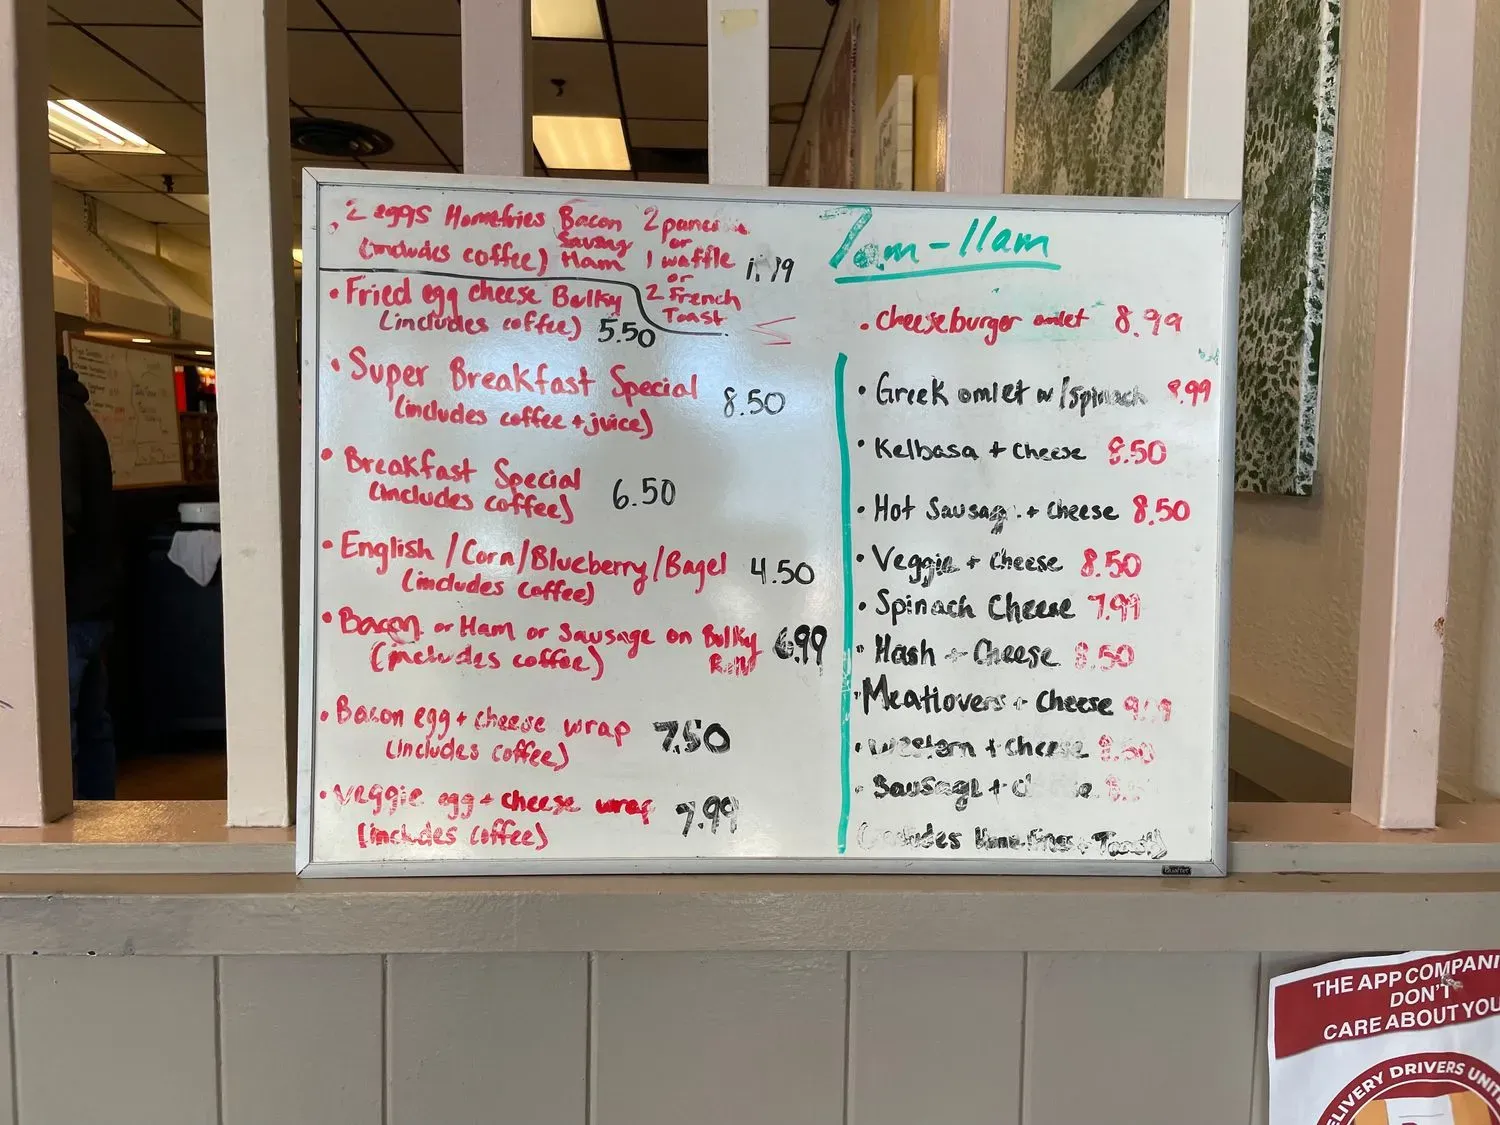 . 2 eggs Homefries Bacon 2
(includes coffee) Sausag or
Ham 1 waffle
or
2 French
Toast
• Fried egg cheese Bulky
(includes coffee) 5.50
• Super Breakfast Special 8.50
(includes coffee + juice)
• Breakfast Special 6.50
(includes coffee)
• English / Corn / Blueberry / Bagel 4.50
(includes coffee)
• Bacon or Ham or Sausage on Bulky
(includes coffee) 6.99
• Bacon egg + cheese wrap 7.50
(includes coffee)
• Veggie egg + cheese wrap 7.99
(includes coffee)
7am - 11am
• Cheeseburger omlet 8.99
• Greek omlet w/spinach 8.99
• Kelbasa + cheese 8.50
• Hot Sausag + cheese 8.50
• Veggie + cheese 8.50
• Spinach Cheese 7.99
• Hash + Cheese 8.50
• Meatlovers + Cheese
• Western + cheese 8.50
• Sausage +
Toast)
Quartet
THE APP COMPANI
DON'T
CARE ABOUT YOU
ELIVERY DRIVERS UNIT